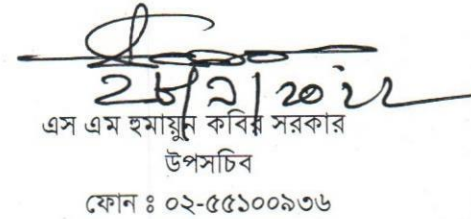 এস এম হুমায়ুন কবির সরকার
উপসচিব
ফোন ঃ ০২-৫৫১০০৯৩৬